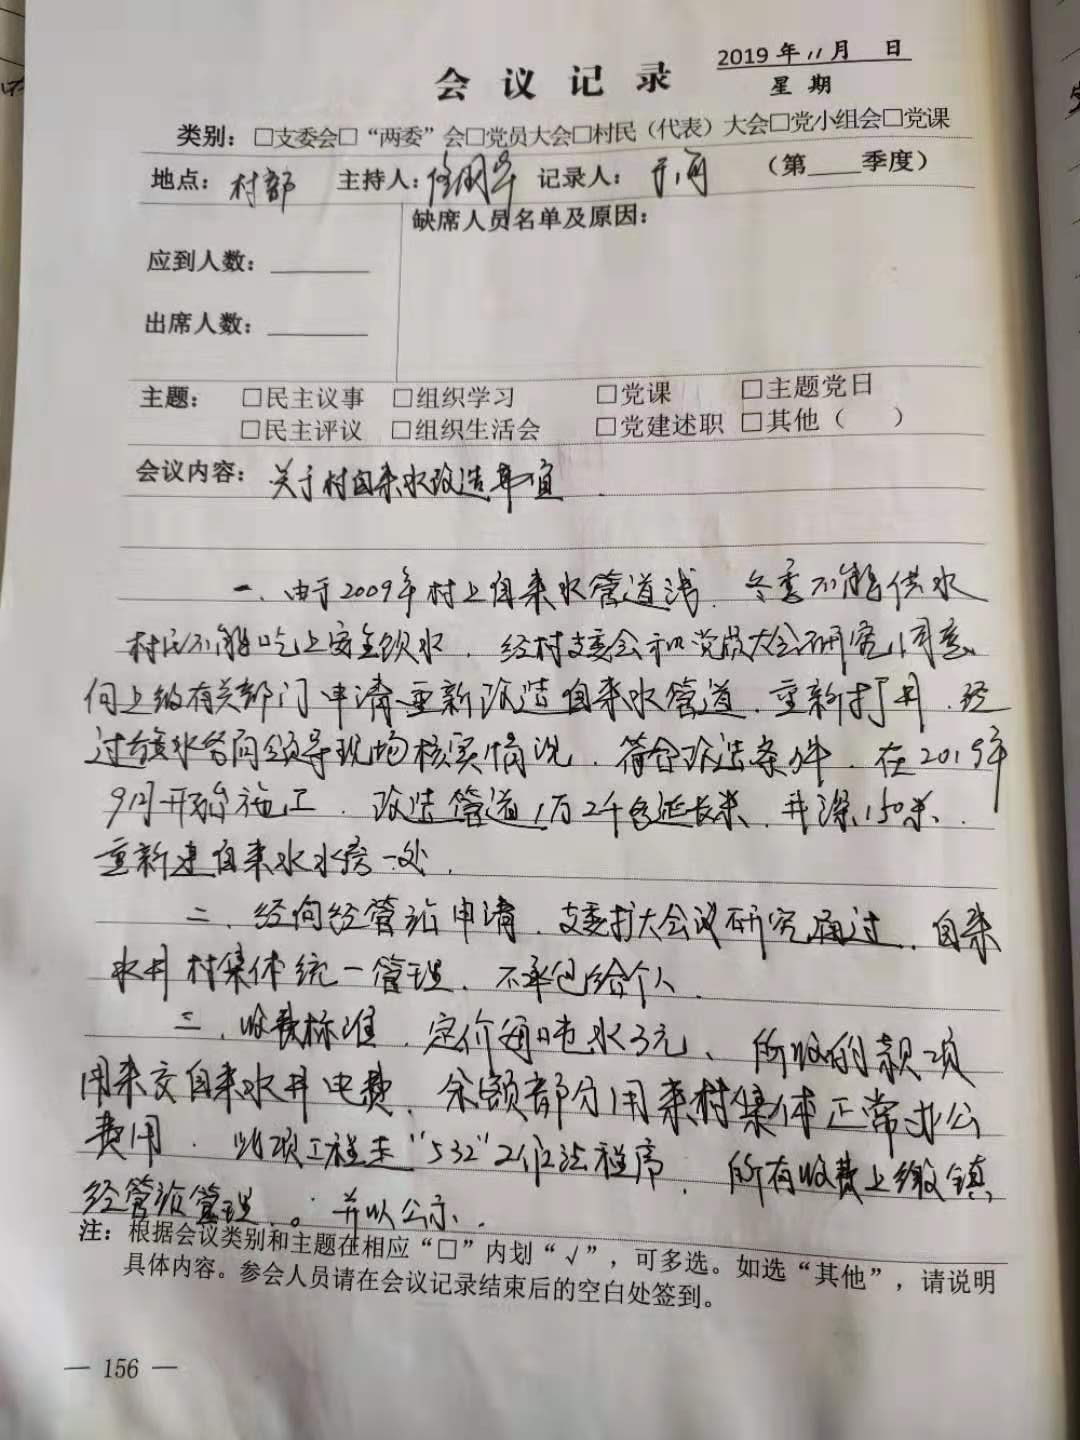 2019 年 11 月 日
会 议 记 录
星 期
类别：□支委会□“两委”会□党员大会□村民（代表）大会□党小组会□党课
地点：村部 主持人： 记录人： （第____季度）
缺席人员名单及原因：
应到人数：
出席人数：
主题： □民主议事 □组织学习 □党课 □主题党日
□民主评议 □组织生活会 □党建述职 □其他（ ）
会议内容：关于村自来水改造事宜.
一、由于2009年村上自来水管道浅、冬季不能供水
村民不能吃上安全饮水、经村支委会和党员大会研究同意
向上级有关部门申请重新改造自来水管道、重新打井、经
过旗水务局领导现场核实情况、符合改造条件、在2019年
9月开始施工、改造管道1万2千多延长米、井深150米、
重新建自来水水房一处.
二、经向经管站申请、支委扩大会议研究通过、自来
水井村集体统一管理、不承包给个人、
三、收费标准、定价每吨水3元、所收的款项
用来交自来水井电费、余额部分用来村集体正常办公
费用、此项工程走“532”工作法程序、所有收费上缴镇
经管站管理、。并以公示、
注：根据会议类别和主题在相应“□”内划“√”，可多选。如选“其他”，请说明
具体内容。参会人员请在会议记录结束后的空白处签到。
— 156 —